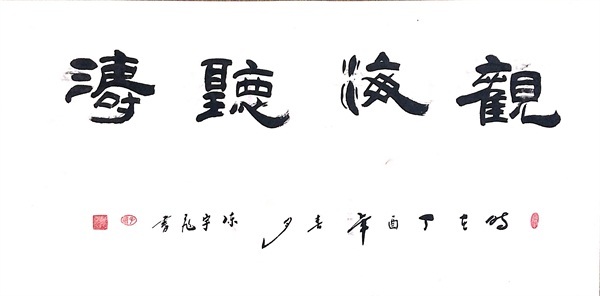 觀海聽濤
時在丁酉年春月 宇書